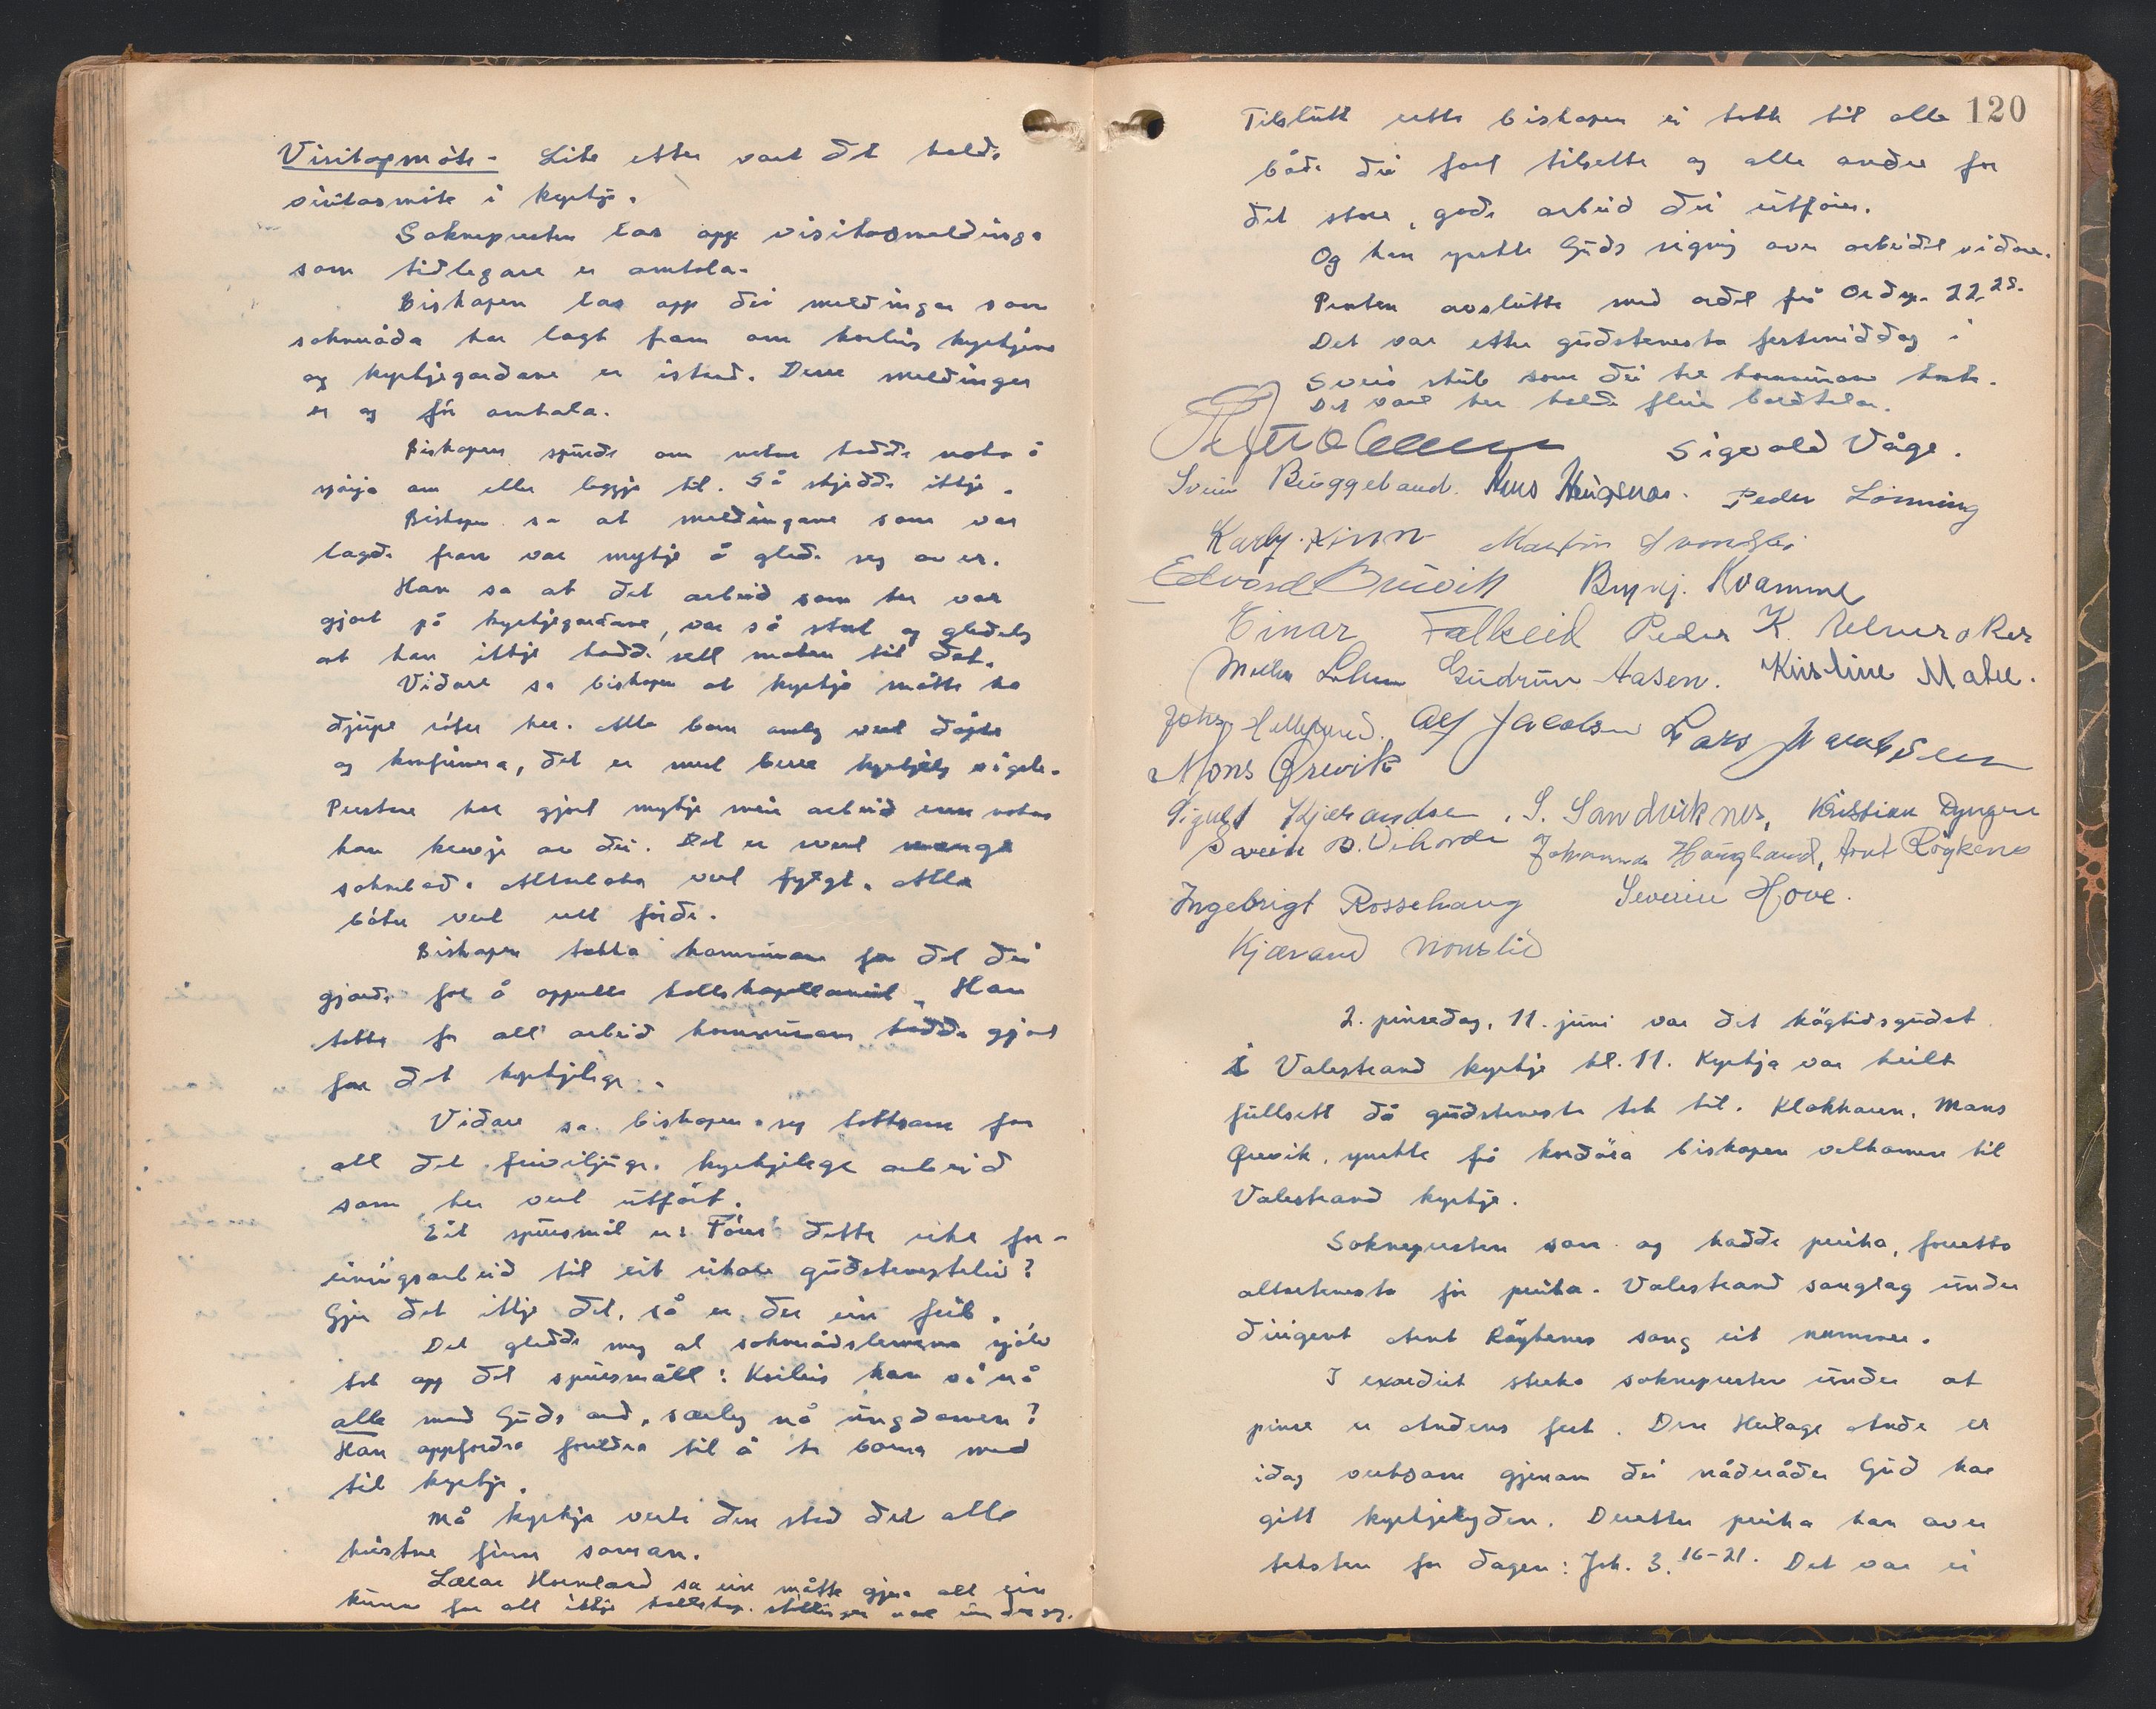 Visitasmøte - Lite etter vart det halde
visitasmøte i kyrkja.
Soknepresten las opp visitasmeldinga
som tidlegare er omtala.
Biskopen las opp dei meldingar som
sokneråda har lagt fram om korleis kyrkjene
og kyrkjegardane er istand. Desse meldingar
er og før omtala.
Biskopen spurde om nokon hadde noko å
spørja om eller leggja til. Så skjedde ikkje.
Biskopen sa at meldingane som var
lagde fram var mykje å glede seg over.
Han sa at det arbeid som her var
gjort på kyrkjegardane, var så stort og gledeleg
at han ikkje hadde sett maken til det.
Vidare sa biskopen at kyrkja måtte ha
djupe røter her. Alle born omlag vert døypte
og konfirmera, det er mest berre kyrkjeleg vigsle.
Prestane har gjort mykje meir arbeid enn nokon
kan krevje av dei. Det er sendt mange
soknebod. Attersteta vert fylgt. Alle
bøker vert rett førde.
Biskopen takka kommunane for det dei
gjorde for å oppretta hjelpekapellanist. Han
takka for alt arbeid kommunane hadde gjort
for det kyrkjelege.
Vidare sa biskopen seg takksam for
alt det friviljuge kyrkjelege arbeid
som her vert utført.
Eit spursmål er: Fører dette rike for-
eningsarbeid til eit rikare gudstenesteliv?
Gjer det ikkje det, så er der ein feil.
Det gledde meg at soknerådslemene sjølv
tok opp det spursmålet: Korleis kan vi nå
alle med Guds ord, særleg nå ungdomen?
Han oppfordra foreldra til å ta borna med
til kyrkje.
Må kyrkja verta den stad det alle
kristne finn saman.
Lærar Hovland sa ein måtte gjera alt ein
kunne for at ikkje hjelpekap. stillinga vart inndregen.
120
Tilslutt retta biskopen ei takk til alle
både dei fast tilsette og alle andre for
det store, gode arbeid dei utfører.
Og han ynskte Guds signing over arbeidet vidare.
Prosten avslutta med ordet frå Ordsp. 22,28.
Det var etter gudstenesta festmiddag i
Sveio skule som dei tre kommunane heldt.
Det vart her halde fleire bordtalar.
Sigvald Våge.
Svein Buggeland. Hans Haugsnes. Peder Lønning
Karly Finn Martin
Edvard Buvik Brynj. Kvamme
Einar Falkeid Peder K.
Gudrun Aasen. Kristine Mahle.
Johs. Alf Jacobsen Lars Jacobsen
Mons Grevik
Sigurd Kjærandsen, S. Sandviknes, Kristian Dyngen
Sverre B. Vihovde og Johannes Haugland, Arnt Røykenes
Ingebrigt Rossehaug Severin Hove.
Kjærand Nonslid
2. pinsedag, 11. juni var det høgtidsgudst.
i Valestrand kyrkje kl. 11. Kyrkja var heilt
fullsett då gudstenesta tok til. Klokkaren, Mons
Grevik, ynskte frå kordøra biskopen velkomen til
Valestrand kyrkje.
Soknepresten som og hadde preika, forretta
altartenesta før preika. Valestrand songlag under
dirigent Arnt Røykenes song eit nummer.
I exordiet streka soknepresten under at
pinse er Andens fest. Den Heilage Ande er
idag verksam gjenom dei nåderåder Gud har
gitt kyrkjelyden. Deretter preika han over
teksten for dagen: Joh. 3, 16-21. Det var ei